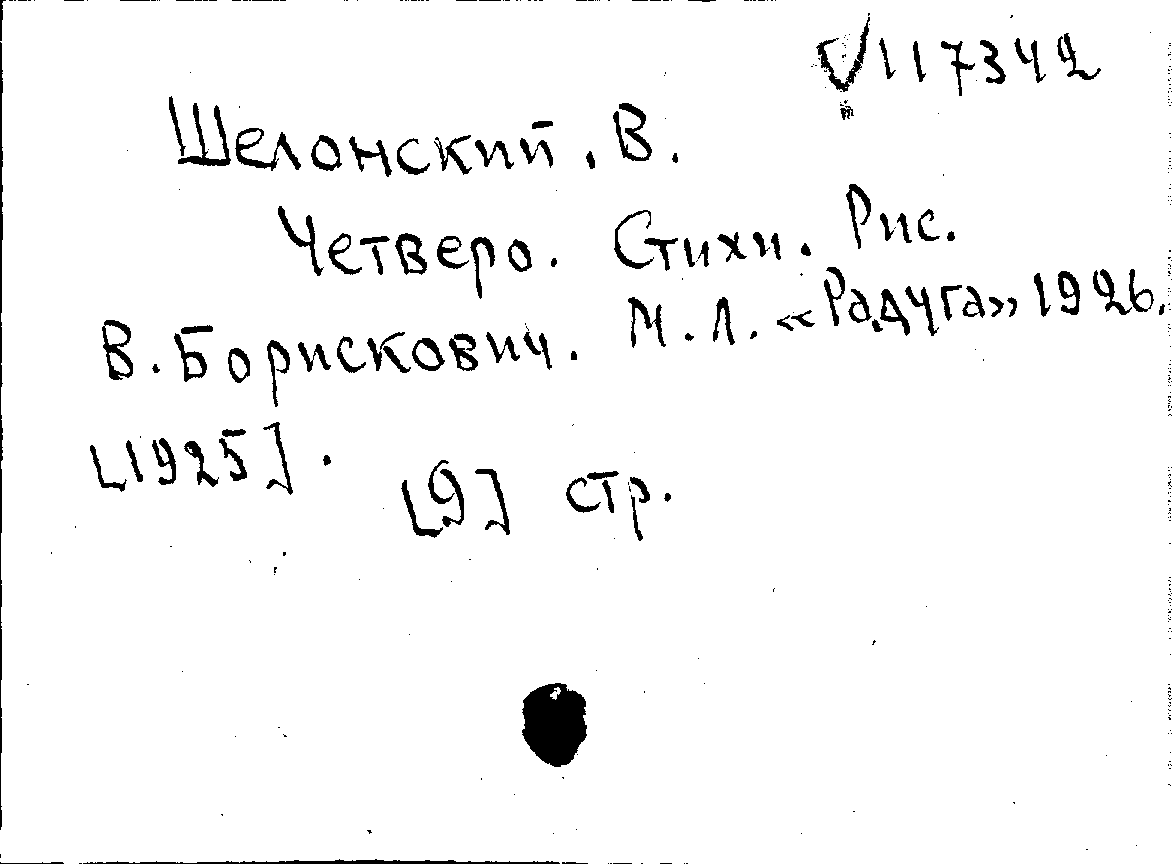 V 117342
Шелонский, В.
Четверо. Стихи. Рис.
В. Борискович. М. Л. «Радуга» 1926.
[1925]. [9] стр.